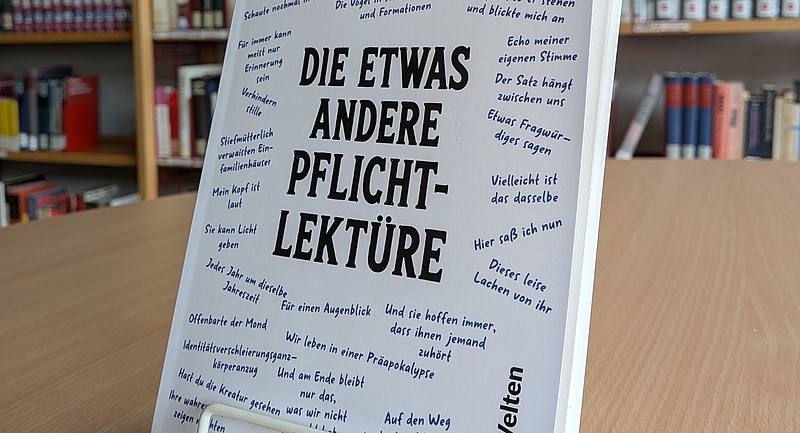 Schaute nochmal
und Formationen
und blickte mich an
Für immer kann
meist nur
Erinnerung
sein
Echo meiner
eigenen Stimme
DIE ETWAS
ANDERE
PFLICHT-
LEKTÜRE
Verhindern
stille
Der Satz hängt
zwischen uns
Etwas Fragwür-
diges sagen
Stiefmütterlich
verwaisten Ein-
familienhäuser
Mein Kopf ist
laut
Vielleicht ist
das dasselbe
Sie kann Licht
geben
Hier saß ich nun
Jedes Jahr um dieselbe
Jahreszeit
Dieses leise
Lachen von ihr
Für einen Augenblick
Und sie hoffen immer,
dass ihnen jemand
zuhört
Offenbarte der Mond
Wir leben in einer Präapokalypse
Identitätsverschleierungsganz-
körperanzug
Und am Ende bleibt
nur das,
was wir nicht
Hast du die Kreatur gesehen
Auf den Weg
zeigen
Welten